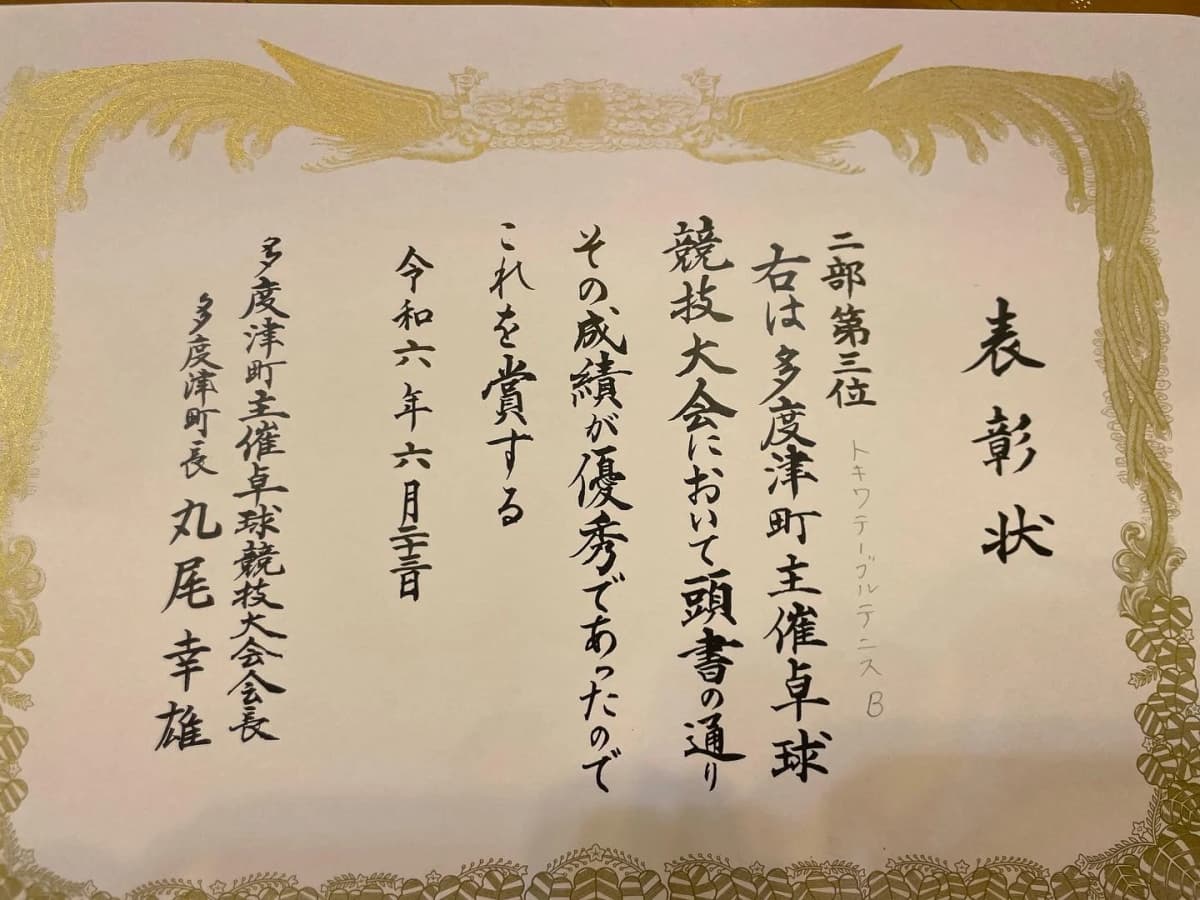 表彰状
二部第三位
トキワテーブルテニス B
右は多度津町主催卓球
競技大会において頭書の通り
その成績が優秀であったので
これを賞する
令和六年六月二十三日
多度津町主催卓球競技大会会長
多度津町長 丸尾幸雄